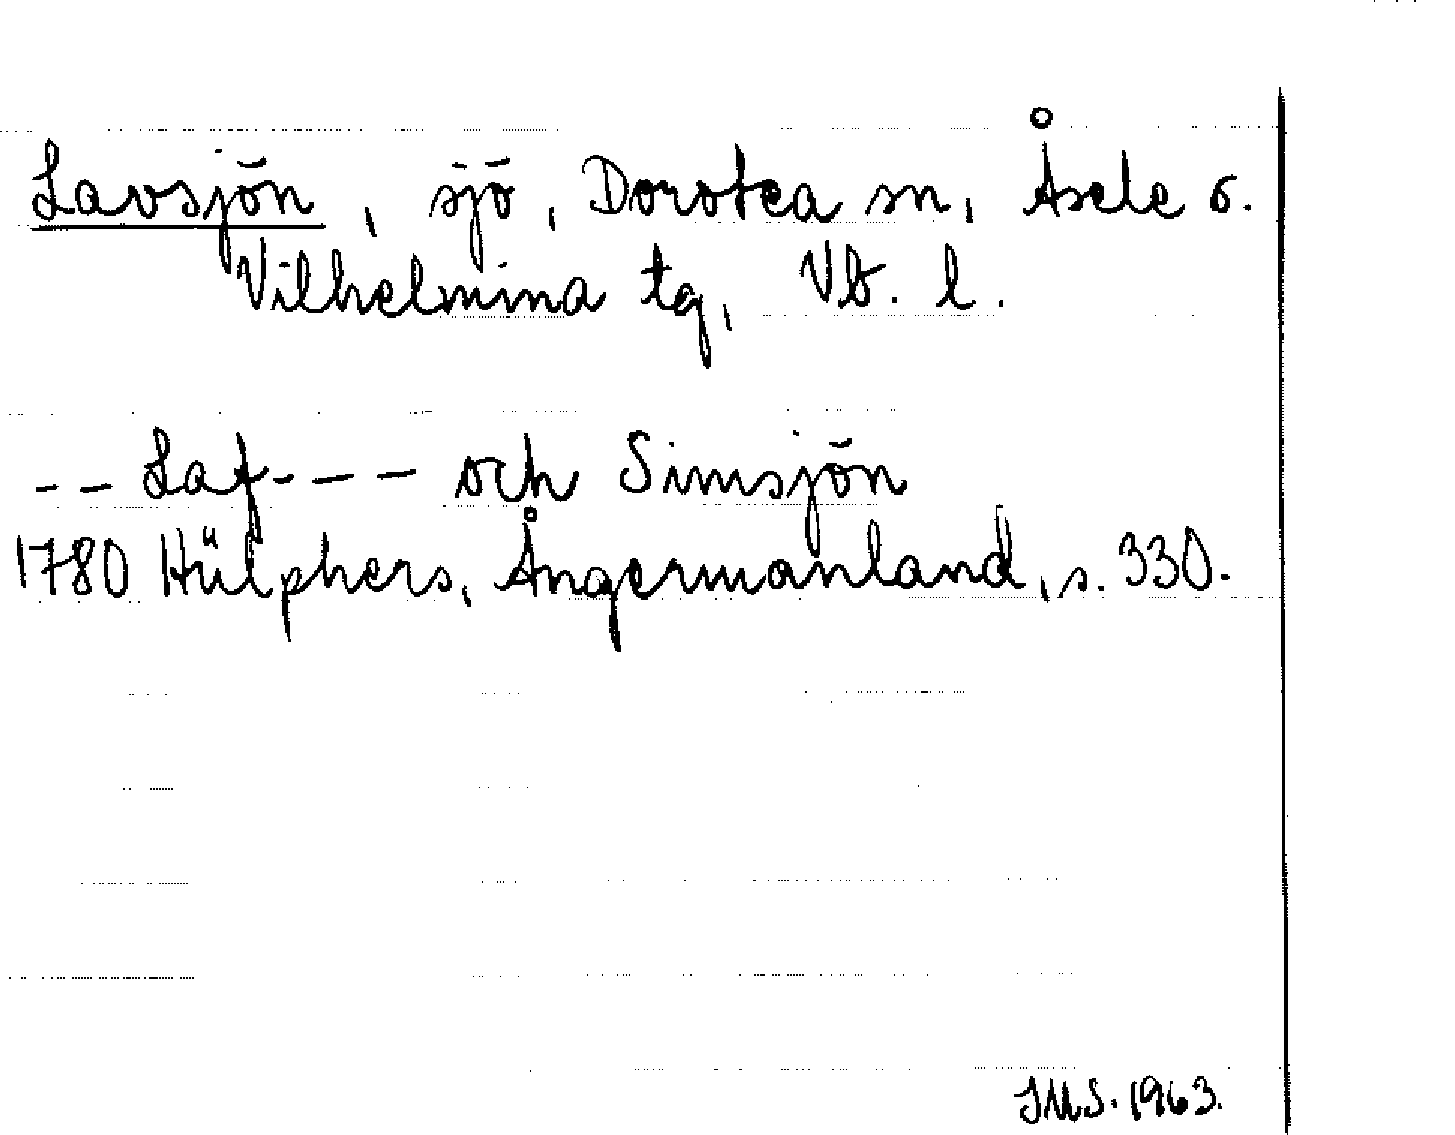 Lavsjön, sjö, Dorotea sn, Åsele o.
Vilhelmina tg, Vb. l.
-- Laf--- och Simsjön
1780 Hülphers, Ångermanland, s. 330.
JMS. 1963.